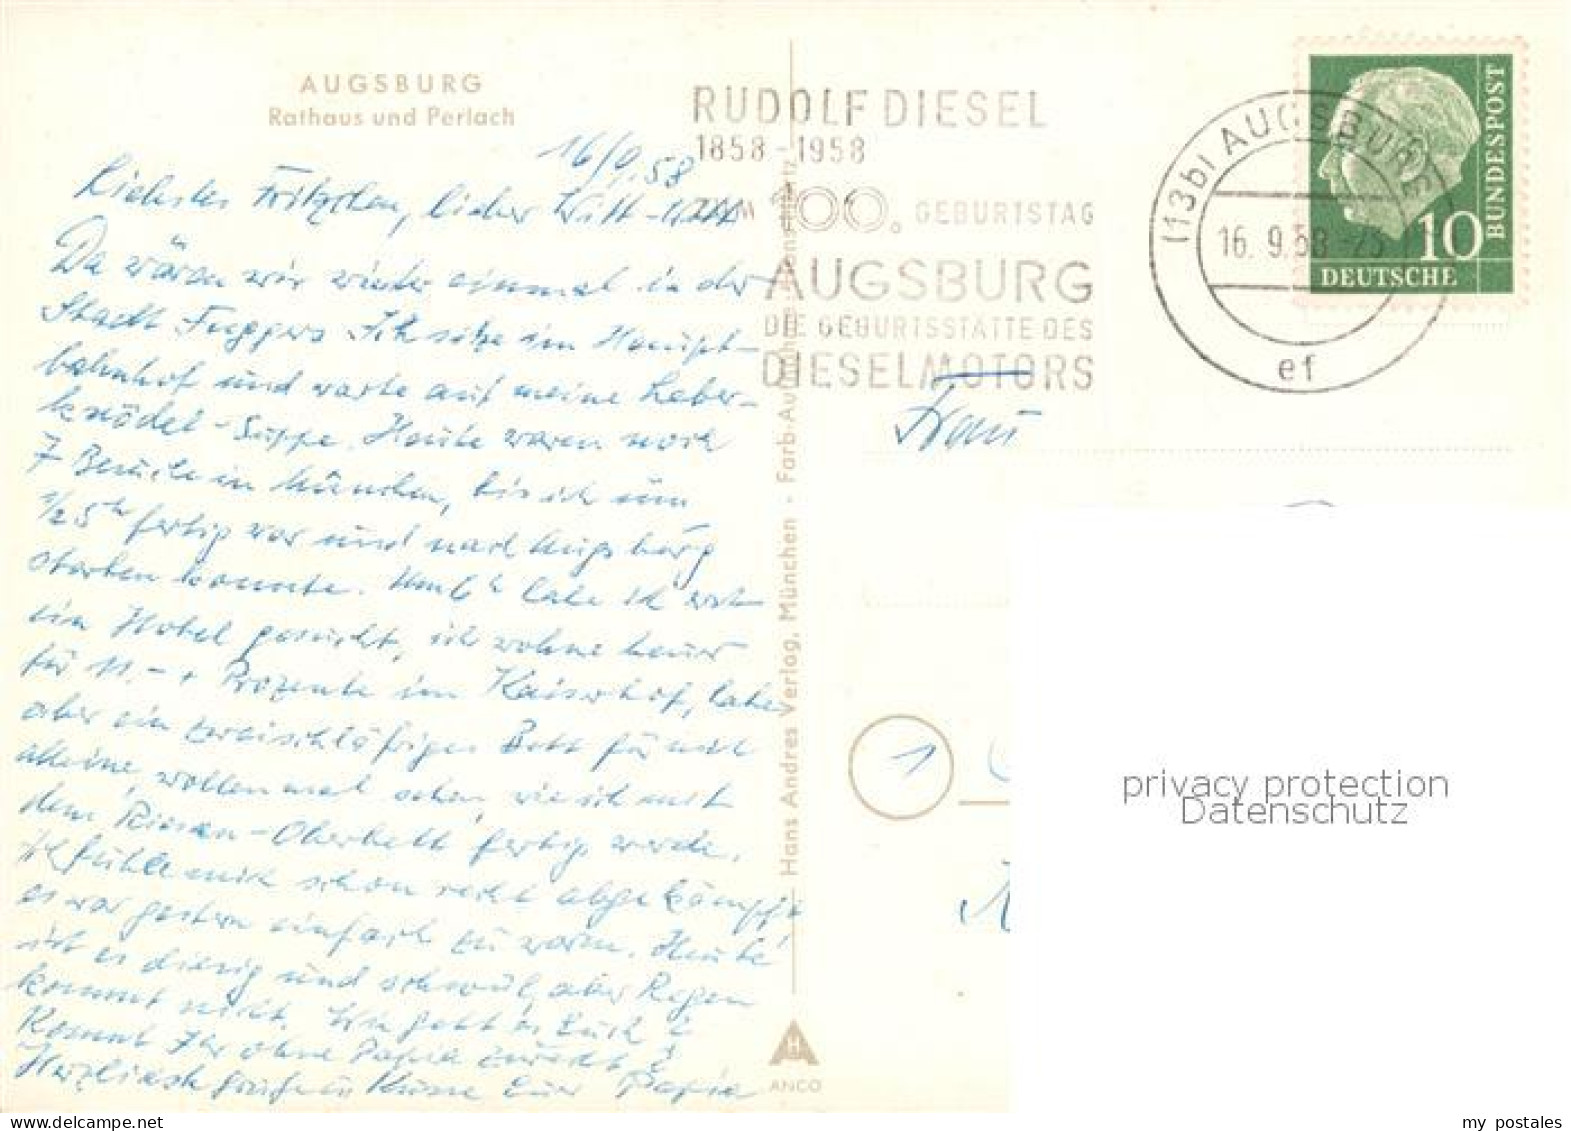 AUGSBURG
Rathaus und Perlach
16/9.58
Liebstes Fritzchen, lieber Witt-Witt
Da wären wir wieder einmal in der
Stadt Fuggers. Ich sitze im Haupt-
bahnhof und warte auf meine Leber-
knödel-Suppe. Heute waren noch
7 Besuche in München, bis ich um
1/2 5h fertig war und nach Augsburg
starten konnte. Um 6h habe ich erst
ein Hotel gesucht, ich wohne heuer
für 11.- + Prozente im Kaiserhof, habe
aber ein zweischläfriges Bett für mich
alleine, wollen mal sehen, wie ich mit
dem Riesen-Oberbett fertig werde.
Ich fühle mich schon recht abgekämpft,
es war gestern einfach zu warm. Heute
ist es diesig und schwül, aber Regen
kommt nicht. Wie geht es Euch?
Kommt Ihr ohne Papia zurecht?
Herzliche Grüße u Küsse Euer Papia
Hans Andres Verlag, München · Farb-Aufnahme:
ANCO
RUDOLF DIESEL
1858-1958
ZUM 100. GEBURTSTAG
AUGSBURG
DIE GEBURTSSTÄTTE DES
DIESELMOTORS
(13b) AUGSBURG
16. 9. 58
ef
DEUTSCHE
BUNDESPOST
10
Frau
1
privacy protection
Datenschutz
my postales